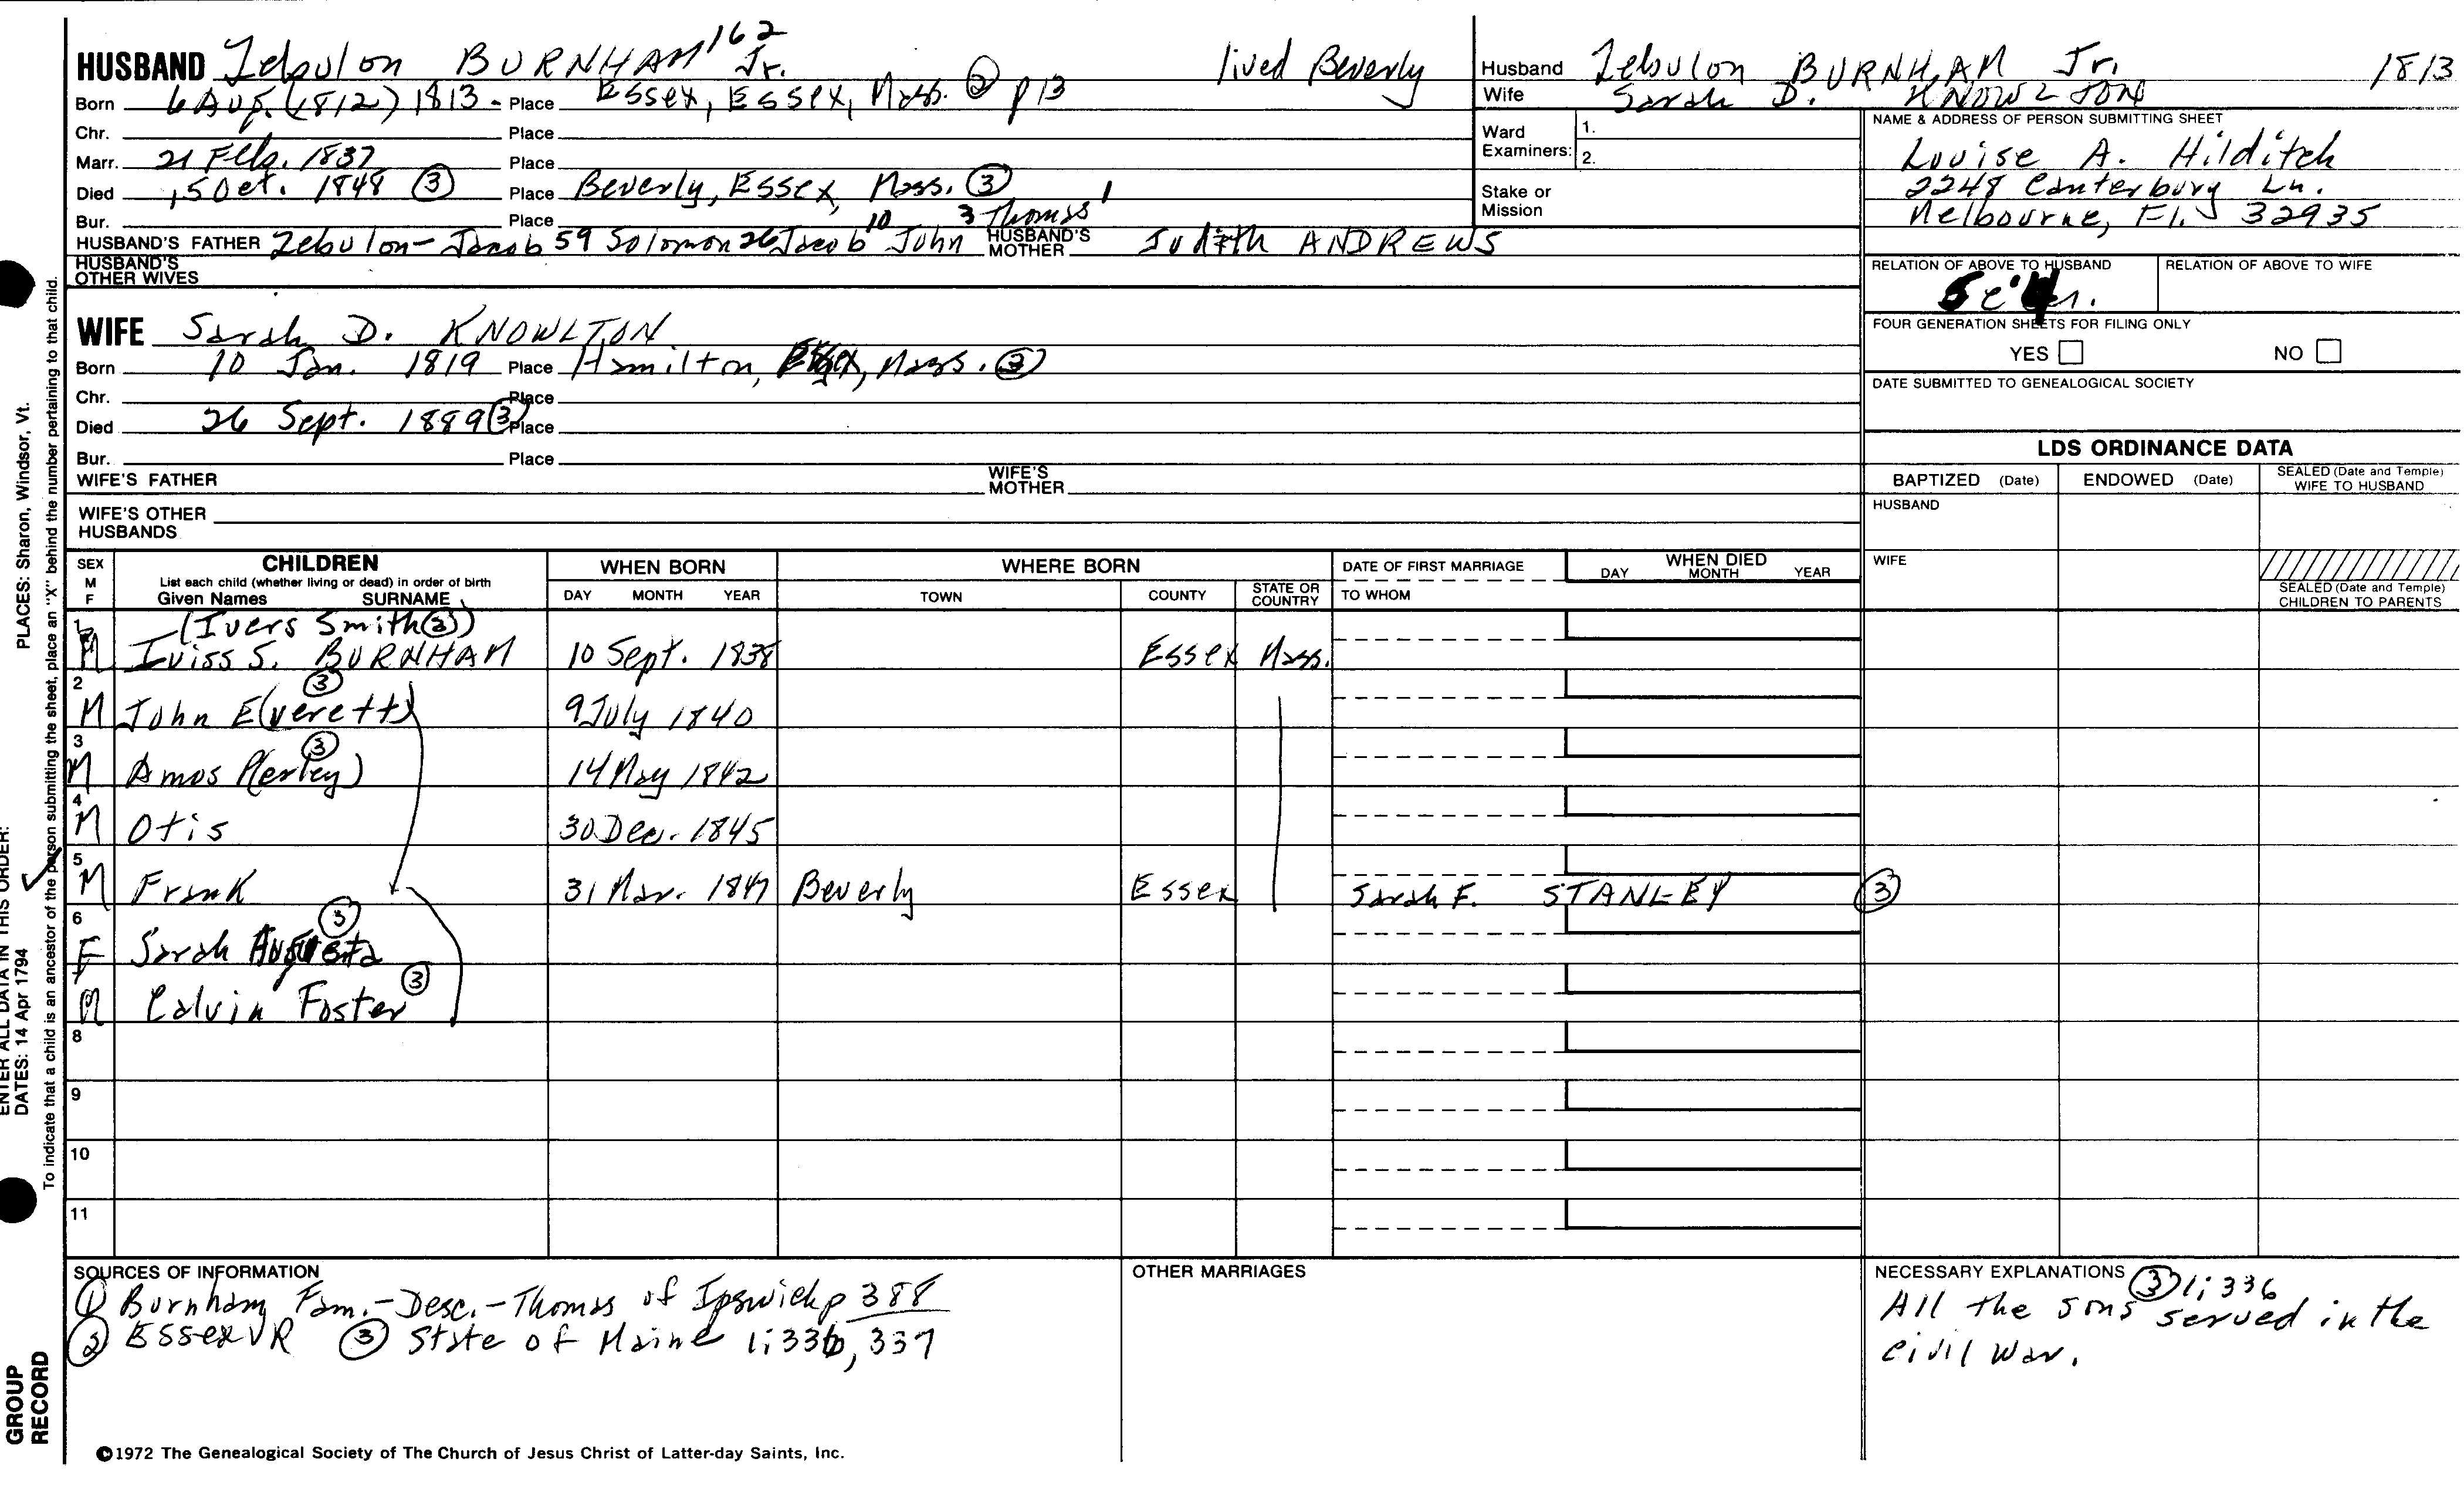 HUSBAND Zebulon BURNHAM 162 Jr. lived Beverly
Born 6 Aug. (1812) 1813 - Place Essex, Essex, Mass. ② p 13
Chr. Place
Marr. 21 Feb. 1837 Place
Died 15 Oct. 1848 ③ Place Beverly, Essex, Mass. ③
Bur. Place 10 3 Thomas 1
HUSBAND'S FATHER Zebulon - Jacob 59 Solomon 26 Jacob John HUSBAND'S MOTHER Judith ANDREWS
HUSBAND'S OTHER WIVES
Husband Zebulon BURNHAM Jr. 1813
Wife Sarah D. KNOWLTON
Ward Examiners: 1.
2.
Stake or Mission
NAME & ADDRESS OF PERSON SUBMITTING SHEET
Louise A. Hilditch
2248 Canterbury Ln.
Melbourne, Fl. 32935
RELATION OF ABOVE TO HUSBAND RELATION OF ABOVE TO WIFE
FOUR GENERATION SHEETS FOR FILING ONLY
YES NO
DATE SUBMITTED TO GENEALOGICAL SOCIETY
WIFE Sarah D. KNOWLTON
Born 10 Jan. 1819 Place Hamilton, Essex, Mass. ③
Chr. Place
Died 26 Sept. 1889 ③ Place
Bur. Place
WIFE'S FATHER WIFE'S MOTHER
WIFE'S OTHER HUSBANDS
LDS ORDINANCE DATA
BAPTIZED (Date) ENDOWED (Date) SEALED (Date and Temple) WIFE TO HUSBAND
HUSBAND
WIFE
SEALED (Date and Temple) CHILDREN TO PARENTS
SEX M F CHILDREN WHEN BORN WHERE BORN DATE OF FIRST MARRIAGE WHEN DIED
List each child (whether living or dead) in order of birth
Given Names SURNAME DAY MONTH YEAR TOWN COUNTY STATE OR COUNTRY TO WHOM DAY MONTH YEAR
1 (Ivers Smith ③)
M Iviss S. BURNHAM 10 Sept. 1838 Essex Mass.
2 ③
M John E(verett) 9 July 1840
3 ③
M Amos P(erley) 14 May 1842
4
M Otis 30 Dec. 1845
5
M Frank 31 Mar. 1847 Beverly Essex Sarah F. STANLEY ③
6 ③
F Sarah Augusta
③
M Calvin Foster
8
9
10
11
SOURCES OF INFORMATION
① Burnham Fam. - Desc. - Thomas of Ipswich p 388
② Essex VR ③ State of Maine 1; 336, 337
OTHER MARRIAGES
NECESSARY EXPLANATIONS ③ 1; 336
All the sons served in the
civil War.
©1972 The Genealogical Society of The Church of Jesus Christ of Latter-day Saints, Inc.
PLACES: Sharon, Windsor, Vt.
ENTER ALL DATA IN THIS ORDER:
DATES: 14 Apr 1794
To indicate that a child is an ancestor of the person submitting the sheet, place an "X" behind the number pertaining to that child.
GROUP
RECORD